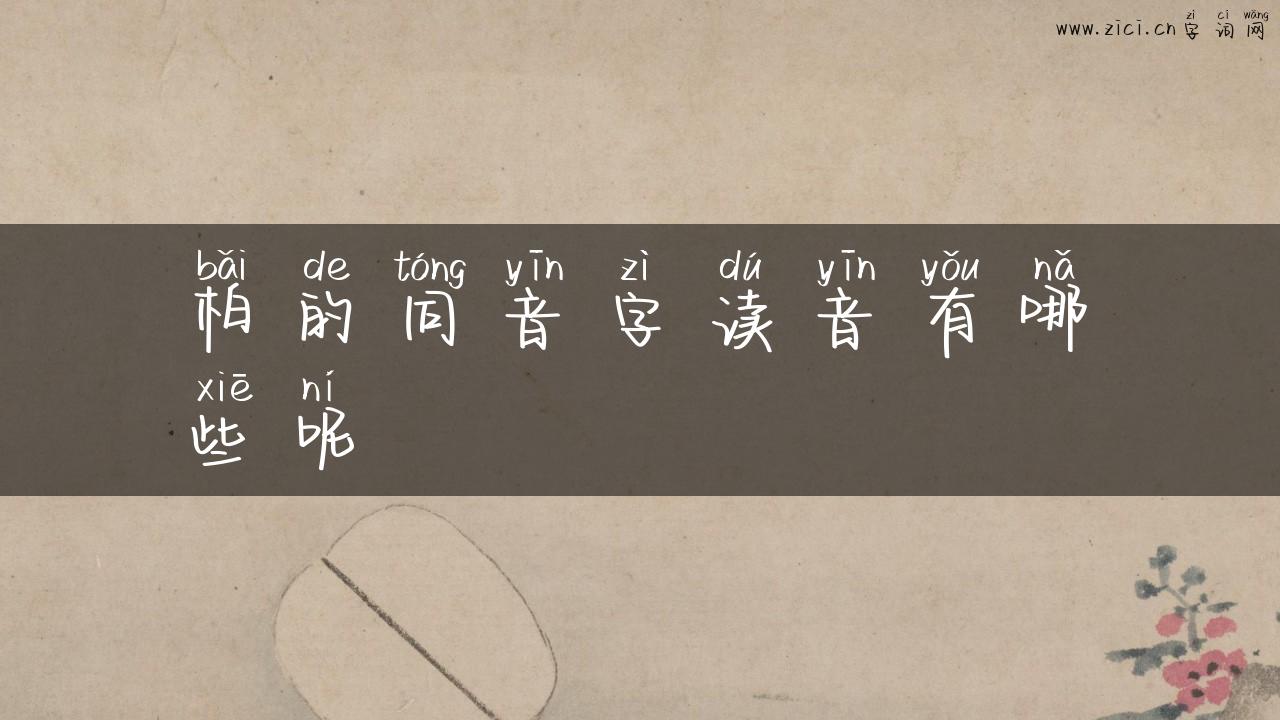 zì cí wǎng
www.zici.cn 字词网
bǎi de tóng yīn zì dú yīn yǒu nǎ
柏的同音字读音有哪
xiē ní
些呢